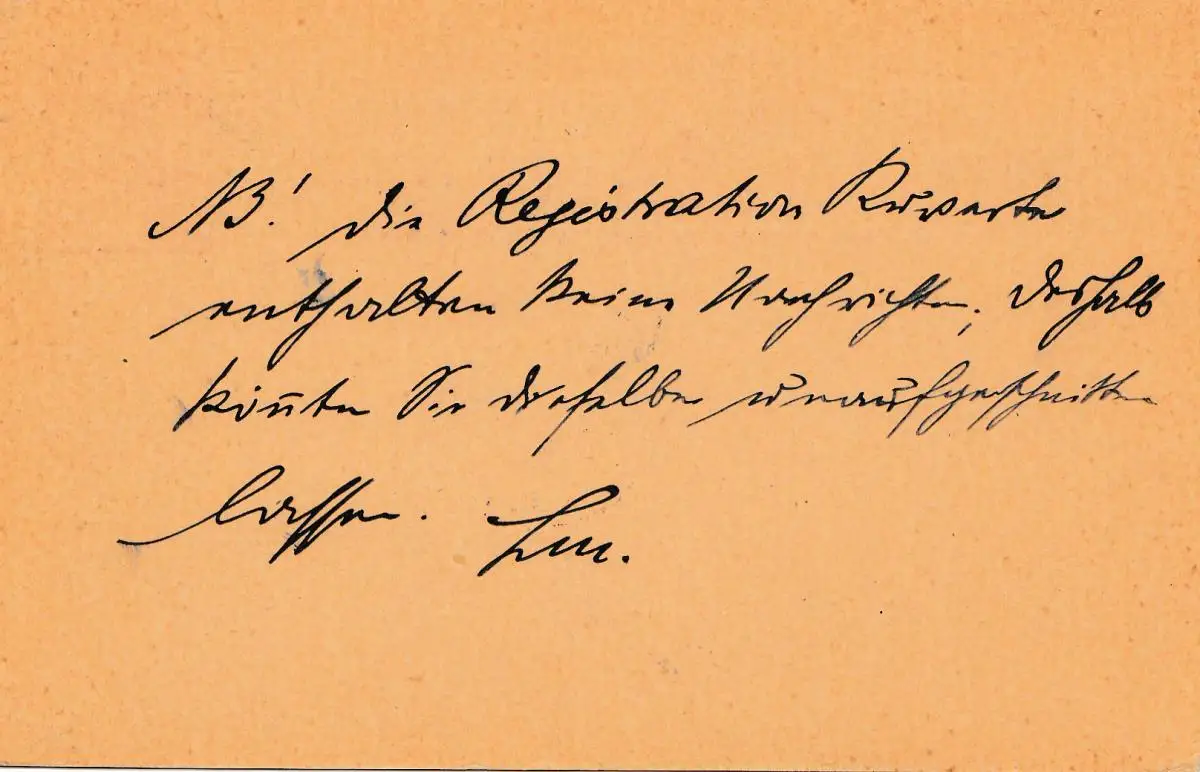 NB! Die Registration Kuverte
enthalten keine Nachrichten, deshalb
könnten Sie dieselben unaufgeschnitten
lassen.